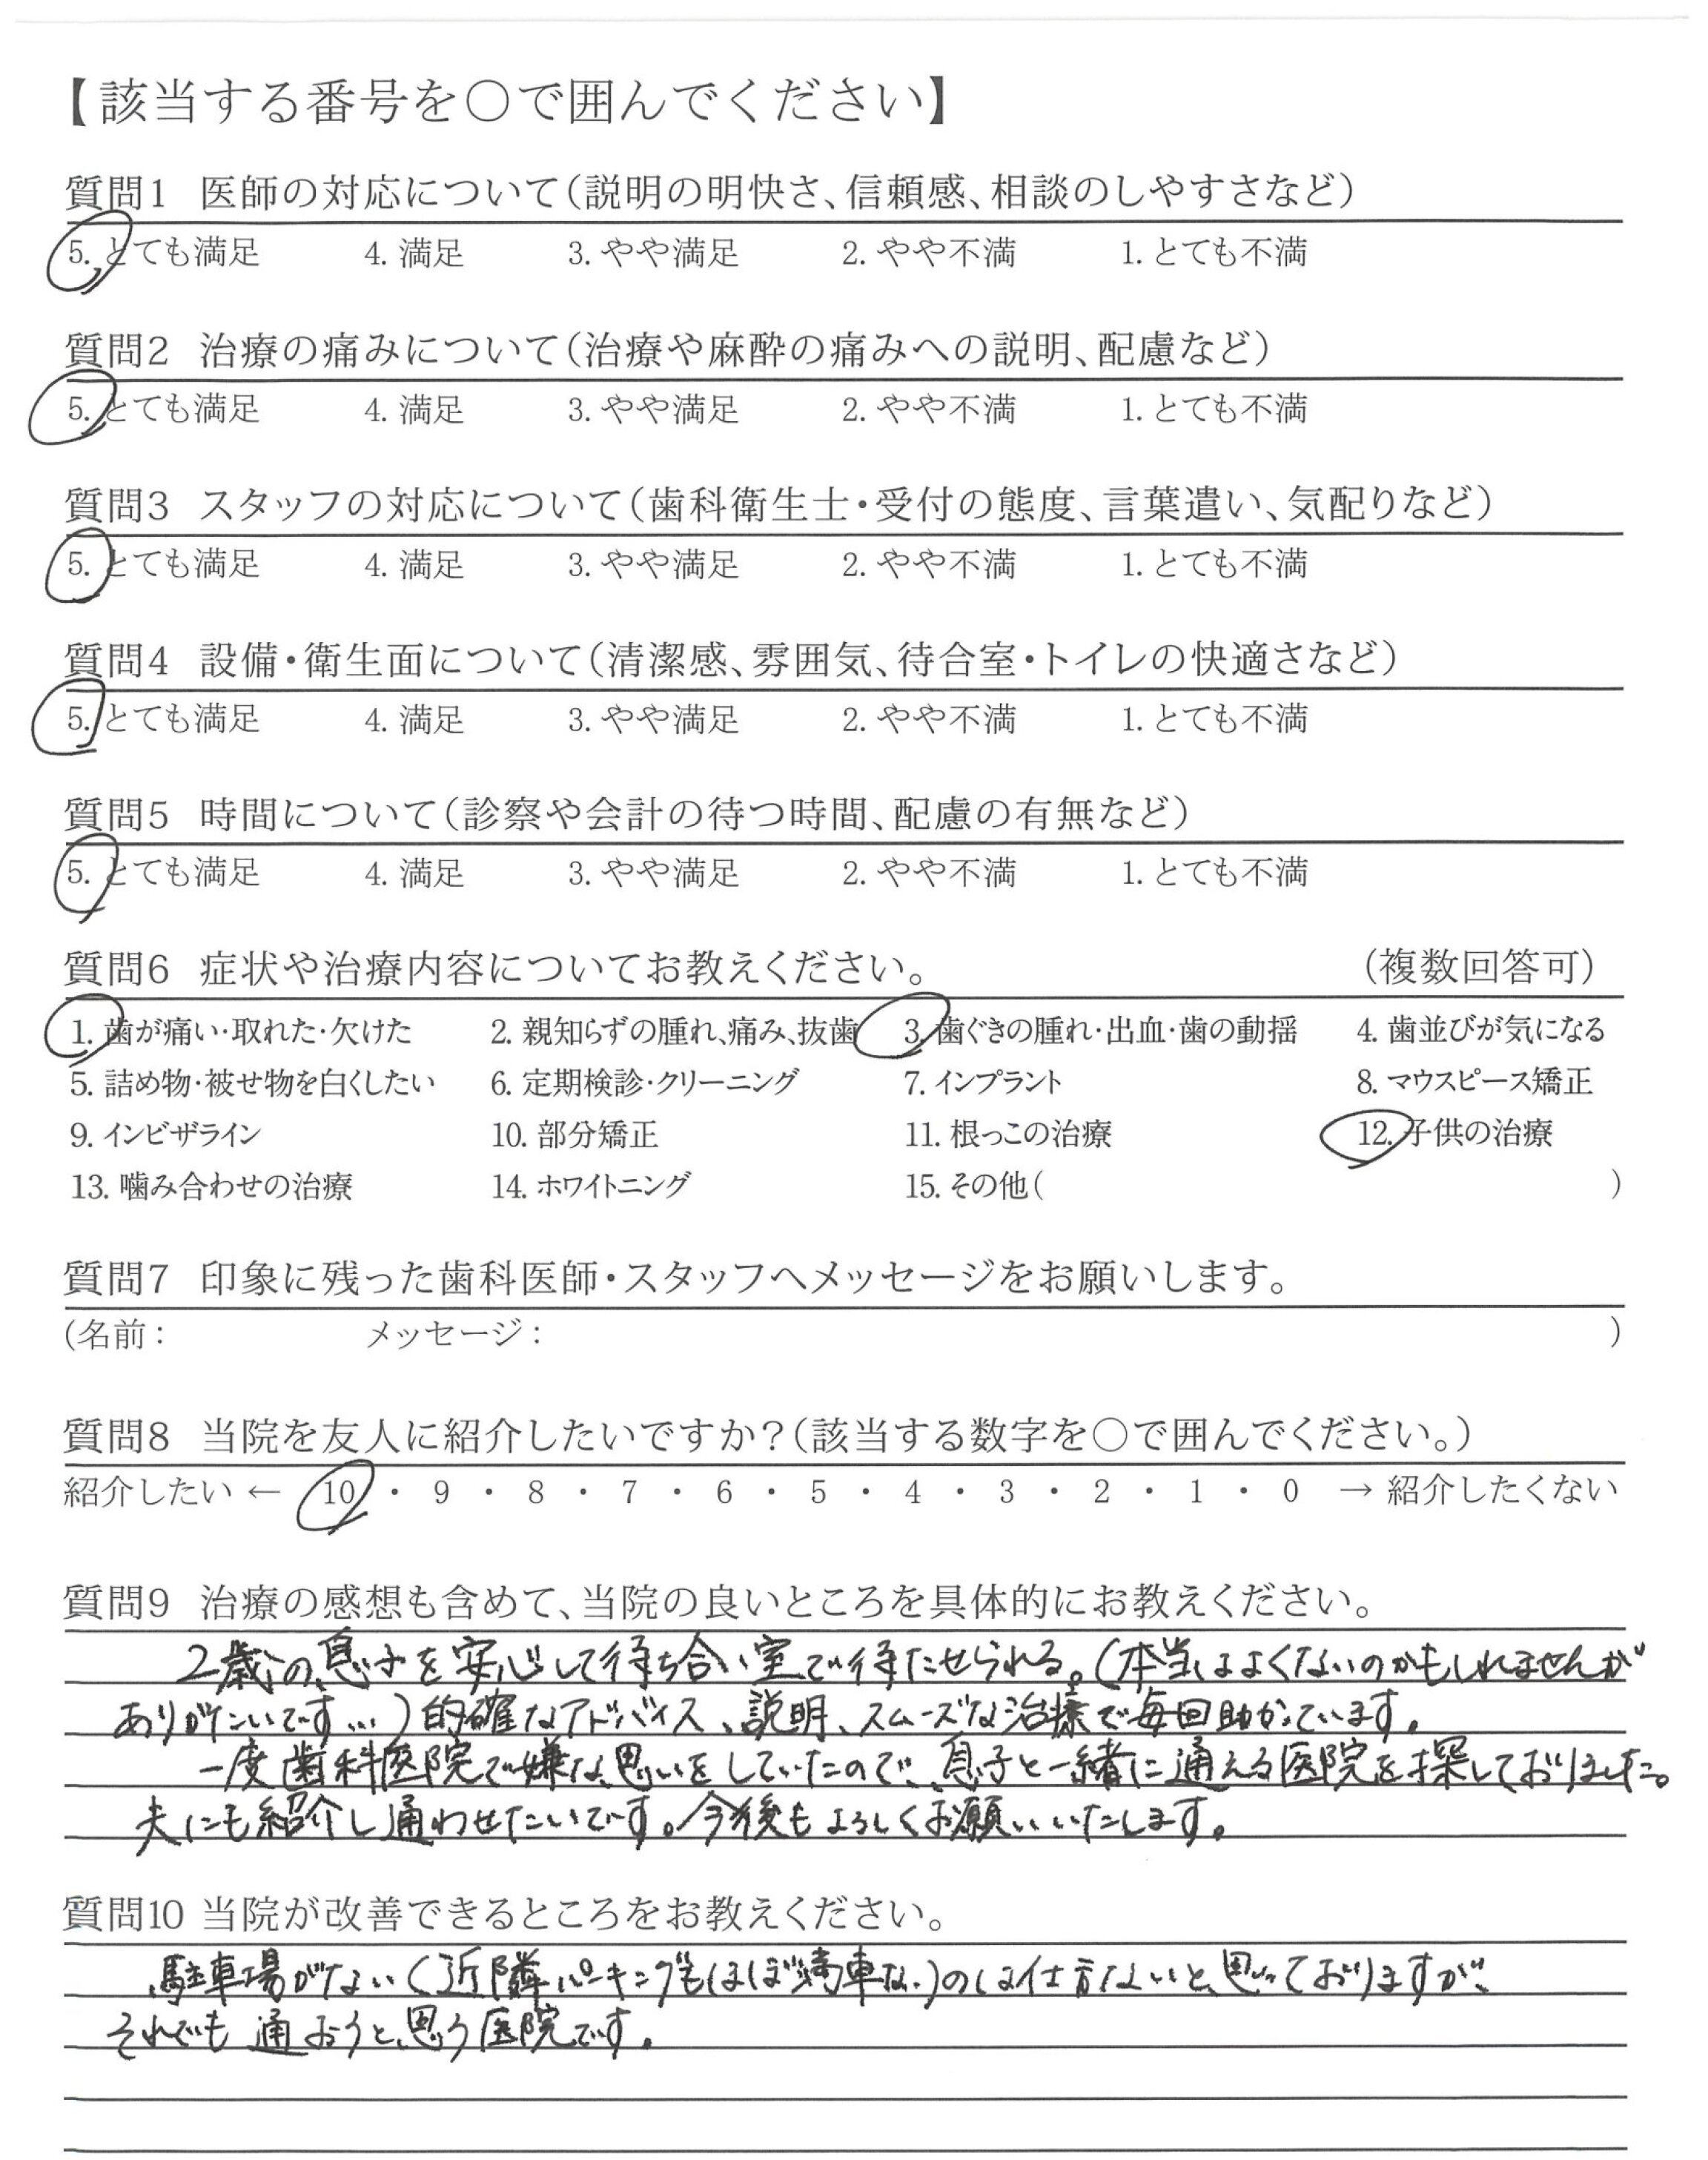 【該当する番号を〇で囲んでください】
質問1 医師の対応について（説明の明快さ、信頼感、相談のしやすさなど）
5. とても満足 4. 満足 3. やや満足 2. やや不満 1. とても不満
質問2 治療の痛みについて（治療や麻酔の痛みへの説明、配慮など）
5. とても満足 4. 満足 3. やや満足 2. やや不満 1. とても不満
質問3 スタッフの対応について（歯科衛生士・受付の態度、言葉遣い、気配りなど）
5. とても満足 4. 満足 3. やや満足 2. やや不満 1. とても不満
質問4 設備・衛生面について（清潔感、雰囲気、待合室・トイレの快適さなど）
5. とても満足 4. 満足 3. やや満足 2. やや不満 1. とても不満
質問5 時間について（診察や会計の待つ時間、配慮の有無など）
5. とても満足 4. 満足 3. やや満足 2. やや不満 1. とても不満
質問6 症状や治療内容についてお教えください。 （複数回答可）
1. 歯が痛い・取れた・欠けた 2. 親知らずの腫れ、痛み、抜歯 3. 歯ぐきの腫れ・出血・歯の動揺 4. 歯並びが気になる
5. 詰め物・被せ物を白くしたい 6. 定期検診・クリーニング 7. インプラント 8. マウスピース矯正
9. インビザライン 10. 部分矯正 11. 根っこの治療 12. 子供の治療
13. 噛み合わせの治療 14. ホワイトニング 15. その他（ ）
質問7 印象に残った歯科医師・スタッフへメッセージをお願いします。
（名前： メッセージ： ）
質問8 当院を友人に紹介したいですか？（該当する数字を〇で囲んでください。）
紹介したい ← 10 ・ 9 ・ 8 ・ 7 ・ 6 ・ 5 ・ 4 ・ 3 ・ 2 ・ 1 ・ 0 → 紹介したくない
質問9 治療の感想も含めて、当院の良いところを具体的にお教えください。
2歳の息子を安心して待ち合い室で待たせられる。（本当はよくないのかもしれませんが
ありがたいです…）的確なアドバイス、説明、スムーズな治療で毎回助かっています。
一度歯科医院で嫌な思いをしていたので、息子と一緒に通える医院を探しておりました。
夫にも紹介し通わせたいです。今後もよろしくお願いいたします。
質問10 当院が改善できるところをお教えください。
駐車場がない（近隣パーキングもほぼ満車な）のは仕方ないと思っておりますが、
それでも通おうと思う医院です。